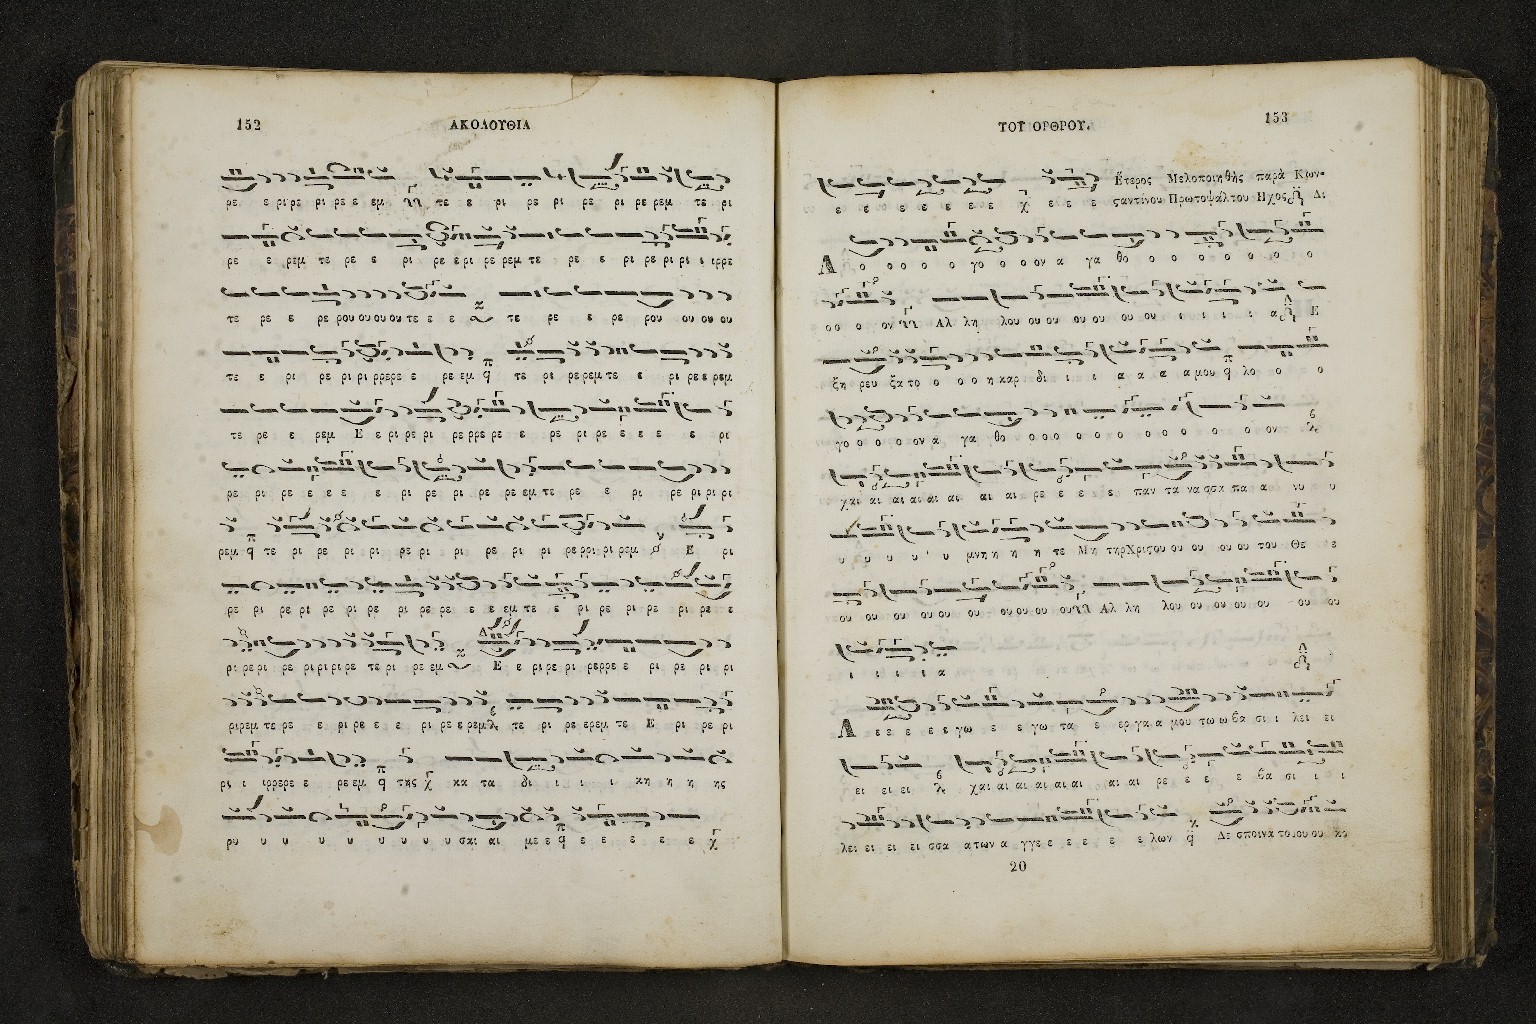 152
ΑΚΟΛΟΥΘΙΑ
ρε ε ρι ρε ρι ρε ε εμ τε ε ρι ρε ρι ρε ρι ρε ρεμ τε ρι
ρε ε ρεμ τε ρε ε ρι ρε ε ρι ρε ρεμ τε ρε ε ρι ρε ρι ρι ι ιρρε
τε ρε ε ρε ρου ου ου ου τε ε ε τε ρε ε ρε ρου ου ου ου
τε ε ρι ρε ρι ρι ρρερε ε ρε εμ τε ρι ρε ρεμ τε ε ρι ρε ε ρεμ
τε ρε ε ρεμ Ε ε ρι ρε ρι ρε ρρε ρε ε ρε ρι ρε ε ε ε ε ρι
ρε ρι ρε ε ε ε ε ρι ρε ρι ρε ρε εμ τε ρε ε ρι ρε ρι ρι ρι
ρεμ τε ρι ρε ρι ρι ρε ρι ρι ρε ρι ρι ρε ρρι ρι ρεμ Ε ρι
ρε ρι ρε ρι ρε ρι ρε ρι ρε ρε ε ε εμ τε ε ρι ρε ρι ρε ρι ρε ε
ρι ρε ρι ρε ρι ρι ρι ρε τε ρι ρε εμ Ε ε ρι ρε ρι ρερρε ε ρι ρε ρι ρι
ριρεμ τε ρε ε ρι ρε ε ε ρι ρε ε ρεμ τε ρι ρε ερεμ τε Ε ρι ρε ρι
ρι ι ιρρερε ε ρε εμ της κα τα δι ι ι ι κη η η ης
ρυ υ υ υ υ υ υ υ υ σαι αι με ε ε ε ε ε ε
ΤΟΥ ΟΡΘΡΟΥ.
153
ε ε ε ε ε ε ε ε ε ε Ἕτερος Μελοποιηθὴς παρὰ Κων-
ςαντίνου Πρωτοψάλτου Ηχος Δι
Λ ο ο ο ο ο γο ο ο ον α γα θο ο ο ο ο ο ο ο
ο ο ο ον Αλ λη λου ου ου ου ου ου ου ι ι ι ι α Ε
ξη ρευ ξα το ο ο ο η καρ δι ι ι ι α α α α μου λο ο ο
γο ο ο ο ον α γα θο ο ο ο ο ο ο ο ο ο ο ο ον
χαι αι αι αι αι αι αι αι ρε ε ε ε παν τα να σσα πα α νυ υ
υ υ υ υ υ μνη η η η τε Μη τηρ Χριςου ου ου ου ου του Θε ε
ου ου ου ου ου ου ου ου ου ου Αλ λη λου ου ου ου ου ου ου
ι ι ι ι α
Λ ε ε ε ε ε γω ε ε γω τα ε ερ γα α μου τω ω βα σι ι λει ει
ει ει ει χαι αι αι αι αι αι αι αι ρε ε ε ε βα σι ι ι
λει ει ει ει εισσα α των α γγε ε ε ε ε ε λων Δε σποινα το ιουου κο
20